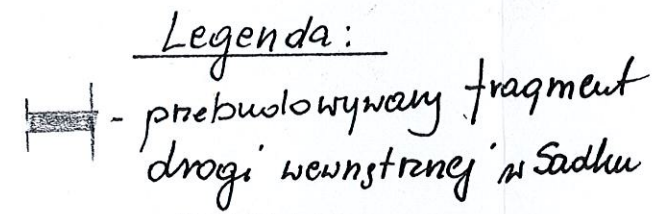 Legenda:
- przebudowywany fragment
drogi wewnętrznej w Sadku